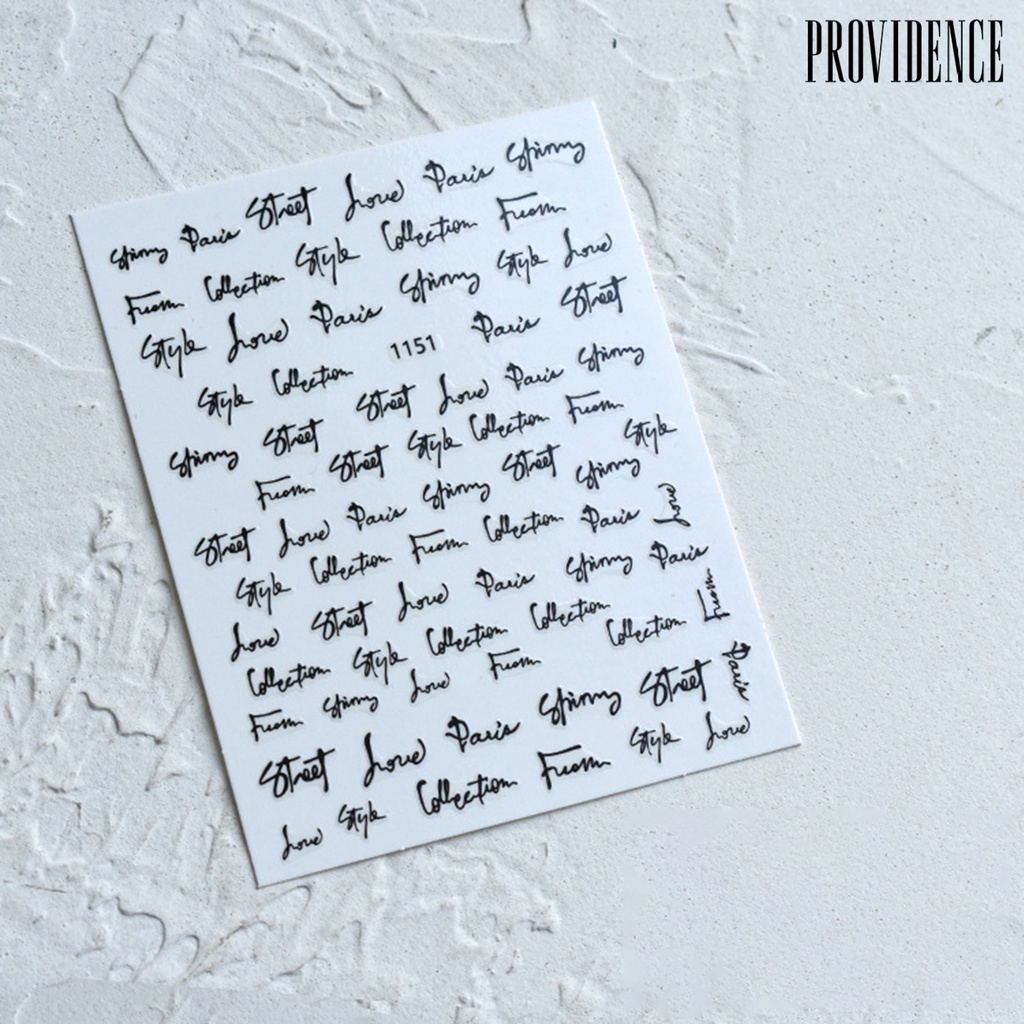 PROVIDENCE
Spinny Paris Street Love Paris Spinny
From Collection Style Collection From
Style Love Paris Spinny Style Love
Style Collection 1151 Paris Street
Spinny Street Street Love Paris Spinny
From Street Style Collection From
Street Love Paris Spinny Street Spinny Style
Style Collection From Collection Paris Love
Love Street Love Paris Spinny Paris
Collection Style Collection Collection Collection From
From Spinny Love From
Street Love Paris Spinny Street Paris
Love Style Collection From Style Love